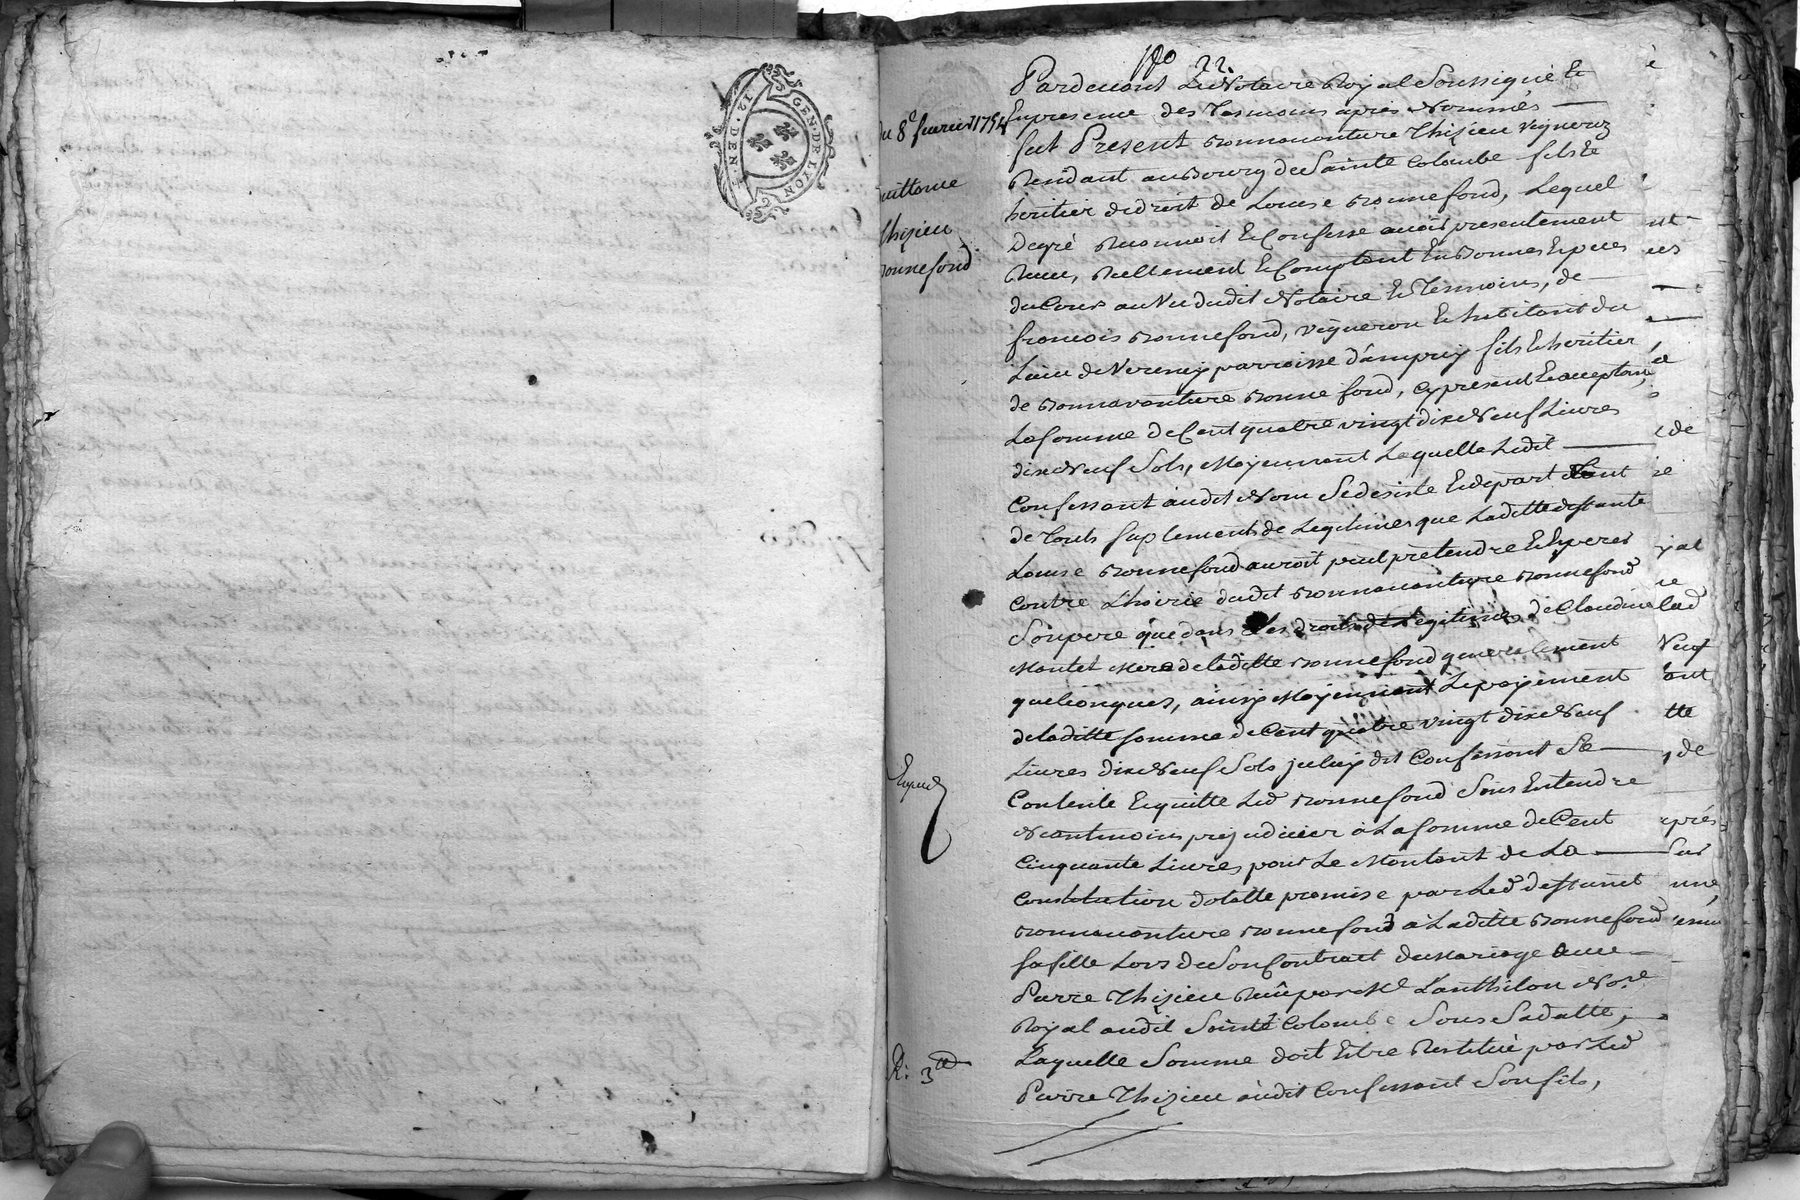 GEN·DE LYON
12·DEN·
22.
du 8e fevrier 1754
quittance
Thizieu
Bonnefond
Pardevant Le Notaire Royal Soussigné Et
En presence des Tesmoins apres Nommés
fut Present Bonnavanture Thizieu Vigneron
Residant au Bourg de Sainte Colombe fils Et
heritier de droit de Louise Bonnefond, Lequel
De gré Reconnoit Et Confesse avoir presentement
Receu, Reellement Et Comptant En Bonnes Especes
du Cours au Vu dudit Notaire Et Temoins, de
francois Bonnefond, Vigneron Et habitant du
Lieu de Verenay parroisse d'ampuy fils Et heritier
de Bonnavanture Bonnefond, cy present Et acceptant,
La somme de Cent quatre vingt dixe Neuf Livres
dixe Neuf Sols, Moyennant Laquelle Ledit
Confessant audit Nom Se desiste Et depart
de touts suplements de Legitimes que Laditte deffante
Louise Bonnefond auroit peut pretendre Et Esperer
Contre L'hoirie dudit Bonnavanture Bonnefond
Son pere que dans Les droits de Legitimes de Claudine
Montet Mere de laditte Bonnefond generalement
quelconques, ainsy Moyennant Le payement
de laditte somme de Cent quatre vingt dixe Neuf
Livres dixe Neuf Sols jceluy dit Confessant Se
Contente Et quitte Led Bonnefond Sans Entendre
Neantmoins prejudicier à La somme de Cent
Cinquante Livres pour Le Montant de La
Constitution dotalle promise par Led deffunct
Bonnavanture Bonnefond à Laditte Bonnefond
sa fille Lors de Son Contrait de Mariage avec
Pierre Thizieu Receu par Me Lanthilon Nore
Royal audit Sainte Colombe Sous Sa datte,
Laquelle Somme doit Estre Restitué par Led
Pierre Thizieu audit Confessant Son fils,
Exped
R: 3tt